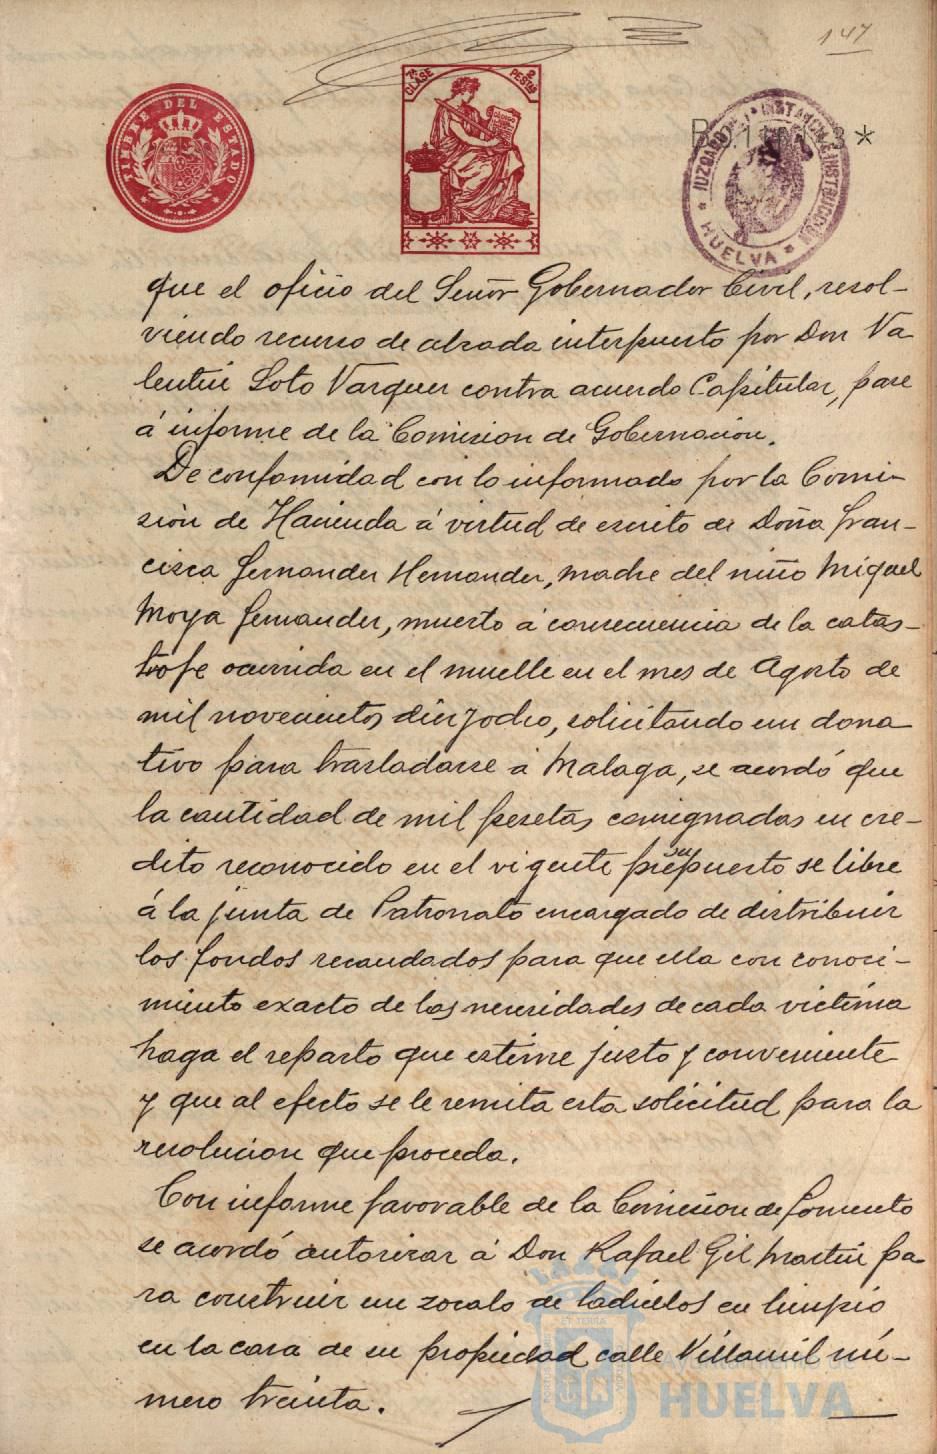 147
7ª CLASE
2 PESTAS
TIMBRE DEL ESTADO
JUZGADO DE 1ª INSTANCIA E INSTRUCCION
* HUELVA *
que el oficio del Señor Gobernador Civil, resol-
viendo recurso de alzada interpuesto por Don Va
lentin Soto Vazquez contra acuerdo Capitular, pase
á informe de la Comision de Gobernacion.
De conformidad con lo informado por la Comi-
sión de Hacienda á virtud de escrito de Doña Fran-
cisca Fernandez Hernandez, madre del niño Miguel
Moya Fernandez, muerto á consecuencia de la catas-
trofe ocurrida en el muelle en el mes de Agosto de
mil novecientos diez y ocho, solicitando un dona
tivo para trasladarse á Malaga, se acordó que
la cantidad de mil pesetas consignadas en cre-
dito reconocido en el vigente presupuesto se libre
á la junta de Patronato encargado de distribuir
los fondos recaudados para que ella con conoci-
miento exacto de las necesidades de cada victima
haga el reparto que estime justo y conveniente
y que al efecto se le remita esta solicitud para la
resolucion que proceda.
Con informe favorable de la Comision de Fomento
se acordó autorizar á Don Rafael Gil Martin pa-
ra construir un zocalo de ladrillos en limpio
en la casa de su propiedad calle Villamil nú-
mero treinta.
Ayuntamiento de
HUELVA